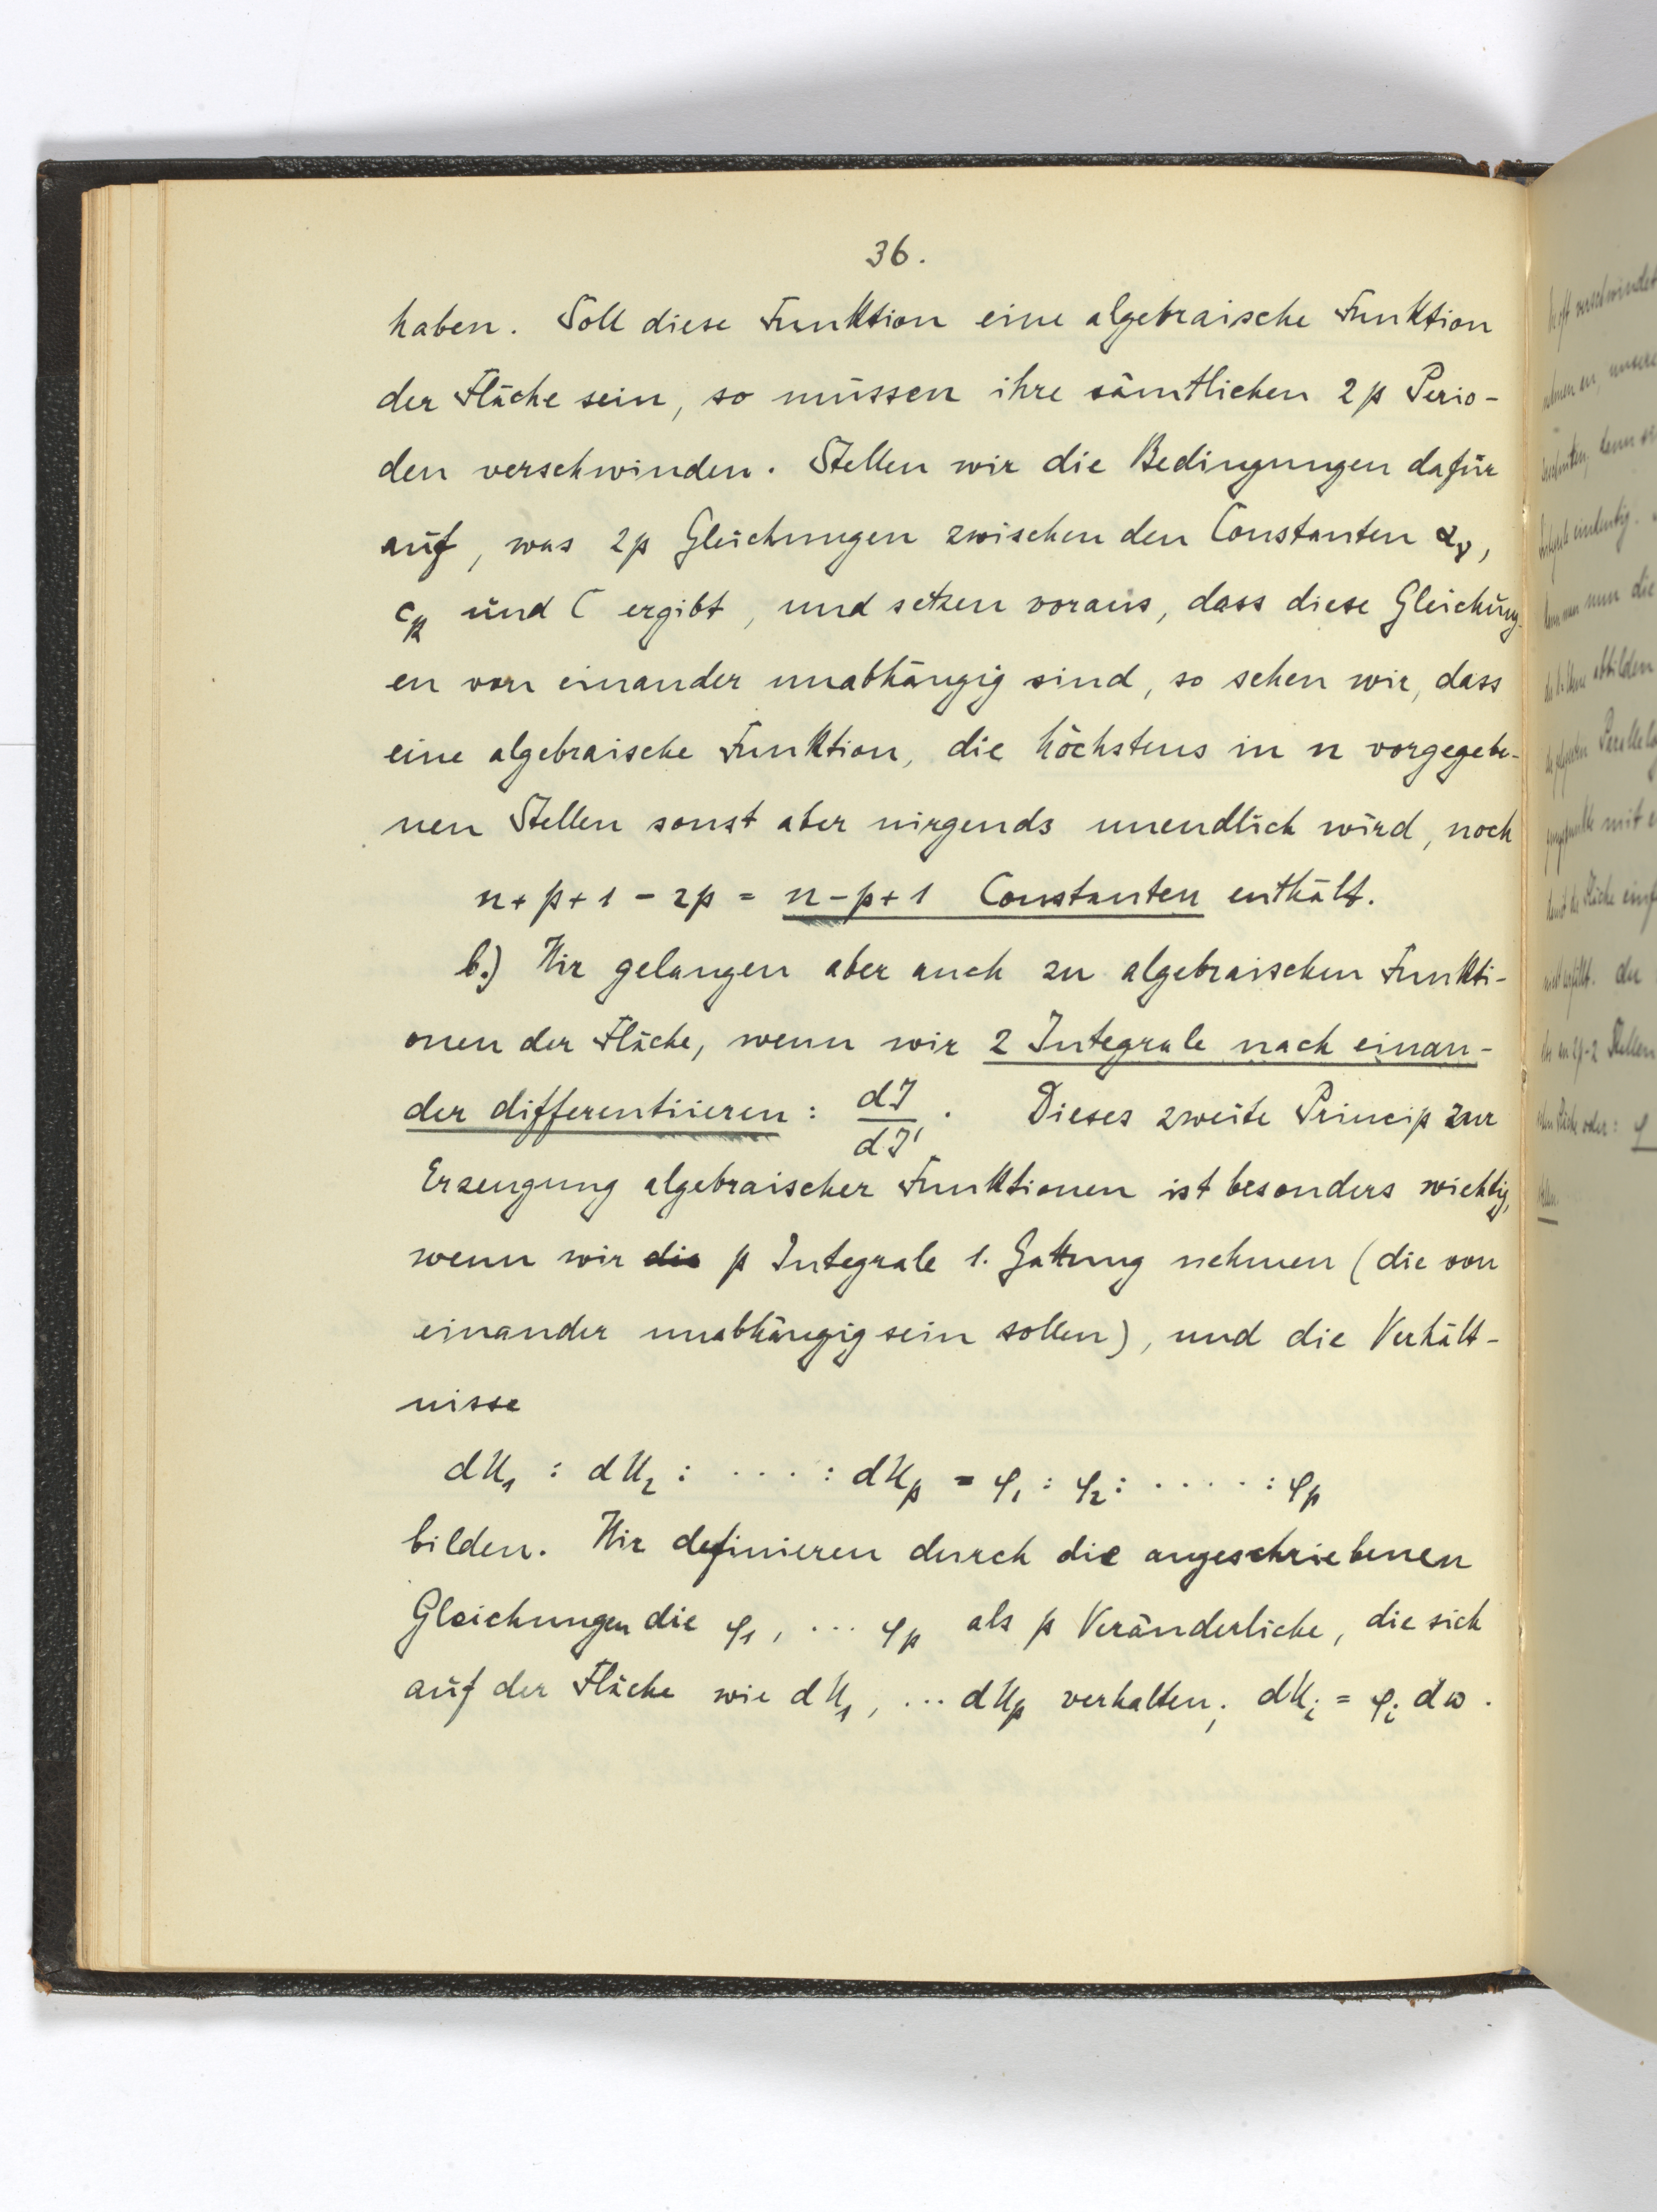 36.
haben. Soll diese Funktion eine algebraische Funktion
der Fläche sein, so müssen ihre sämtlichen 2p Perio-
den verschwinden. Stellen wir die Bedingungen dafür
auf, was 2p Gleichungen zwischen den Constanten αᵧ,
cₖ und C ergibt, und setzen voraus, dass diese Gleichung-
en von einander unabhängig sind, so sehen wir, dass
eine algebraische Funktion, die höchstens in n vorgegebe-
nen Stellen sonst aber nirgends unendlich wird, noch
n+p+1-2p = n-p+1 Constanten enthält.
b.) Wir gelangen aber auch zu algebraischen Funkti-
onen der Fläche, wenn wir 2 Integrale nach einan-
der differentiieren: dJ/dJ'. Dieses zweite Princip zur
Erzeugung algebraischer Funktionen ist besonders wichtig,
wenn wir die p Integrale 1. Gattung nehmen (die von
einander unabhängig sein sollen), und die Verhält-
nisse
dU₁ : dU₂ : ···· : dUₚ = φ₁ : φ₂ : ····· : φₚ
bilden. Wir definieren durch die angeschriebenen
Gleichungen die φ₁, ... φₚ als p Veränderliche, die sich
auf der Fläche wie dU₁, ... dUₚ verhalten; dUᵢ = φᵢ dω.
verschwindet
unsere
eindeutig.
nun die
abbilden
mit
Fläche
die
2p-2 Stellen
oder: φ